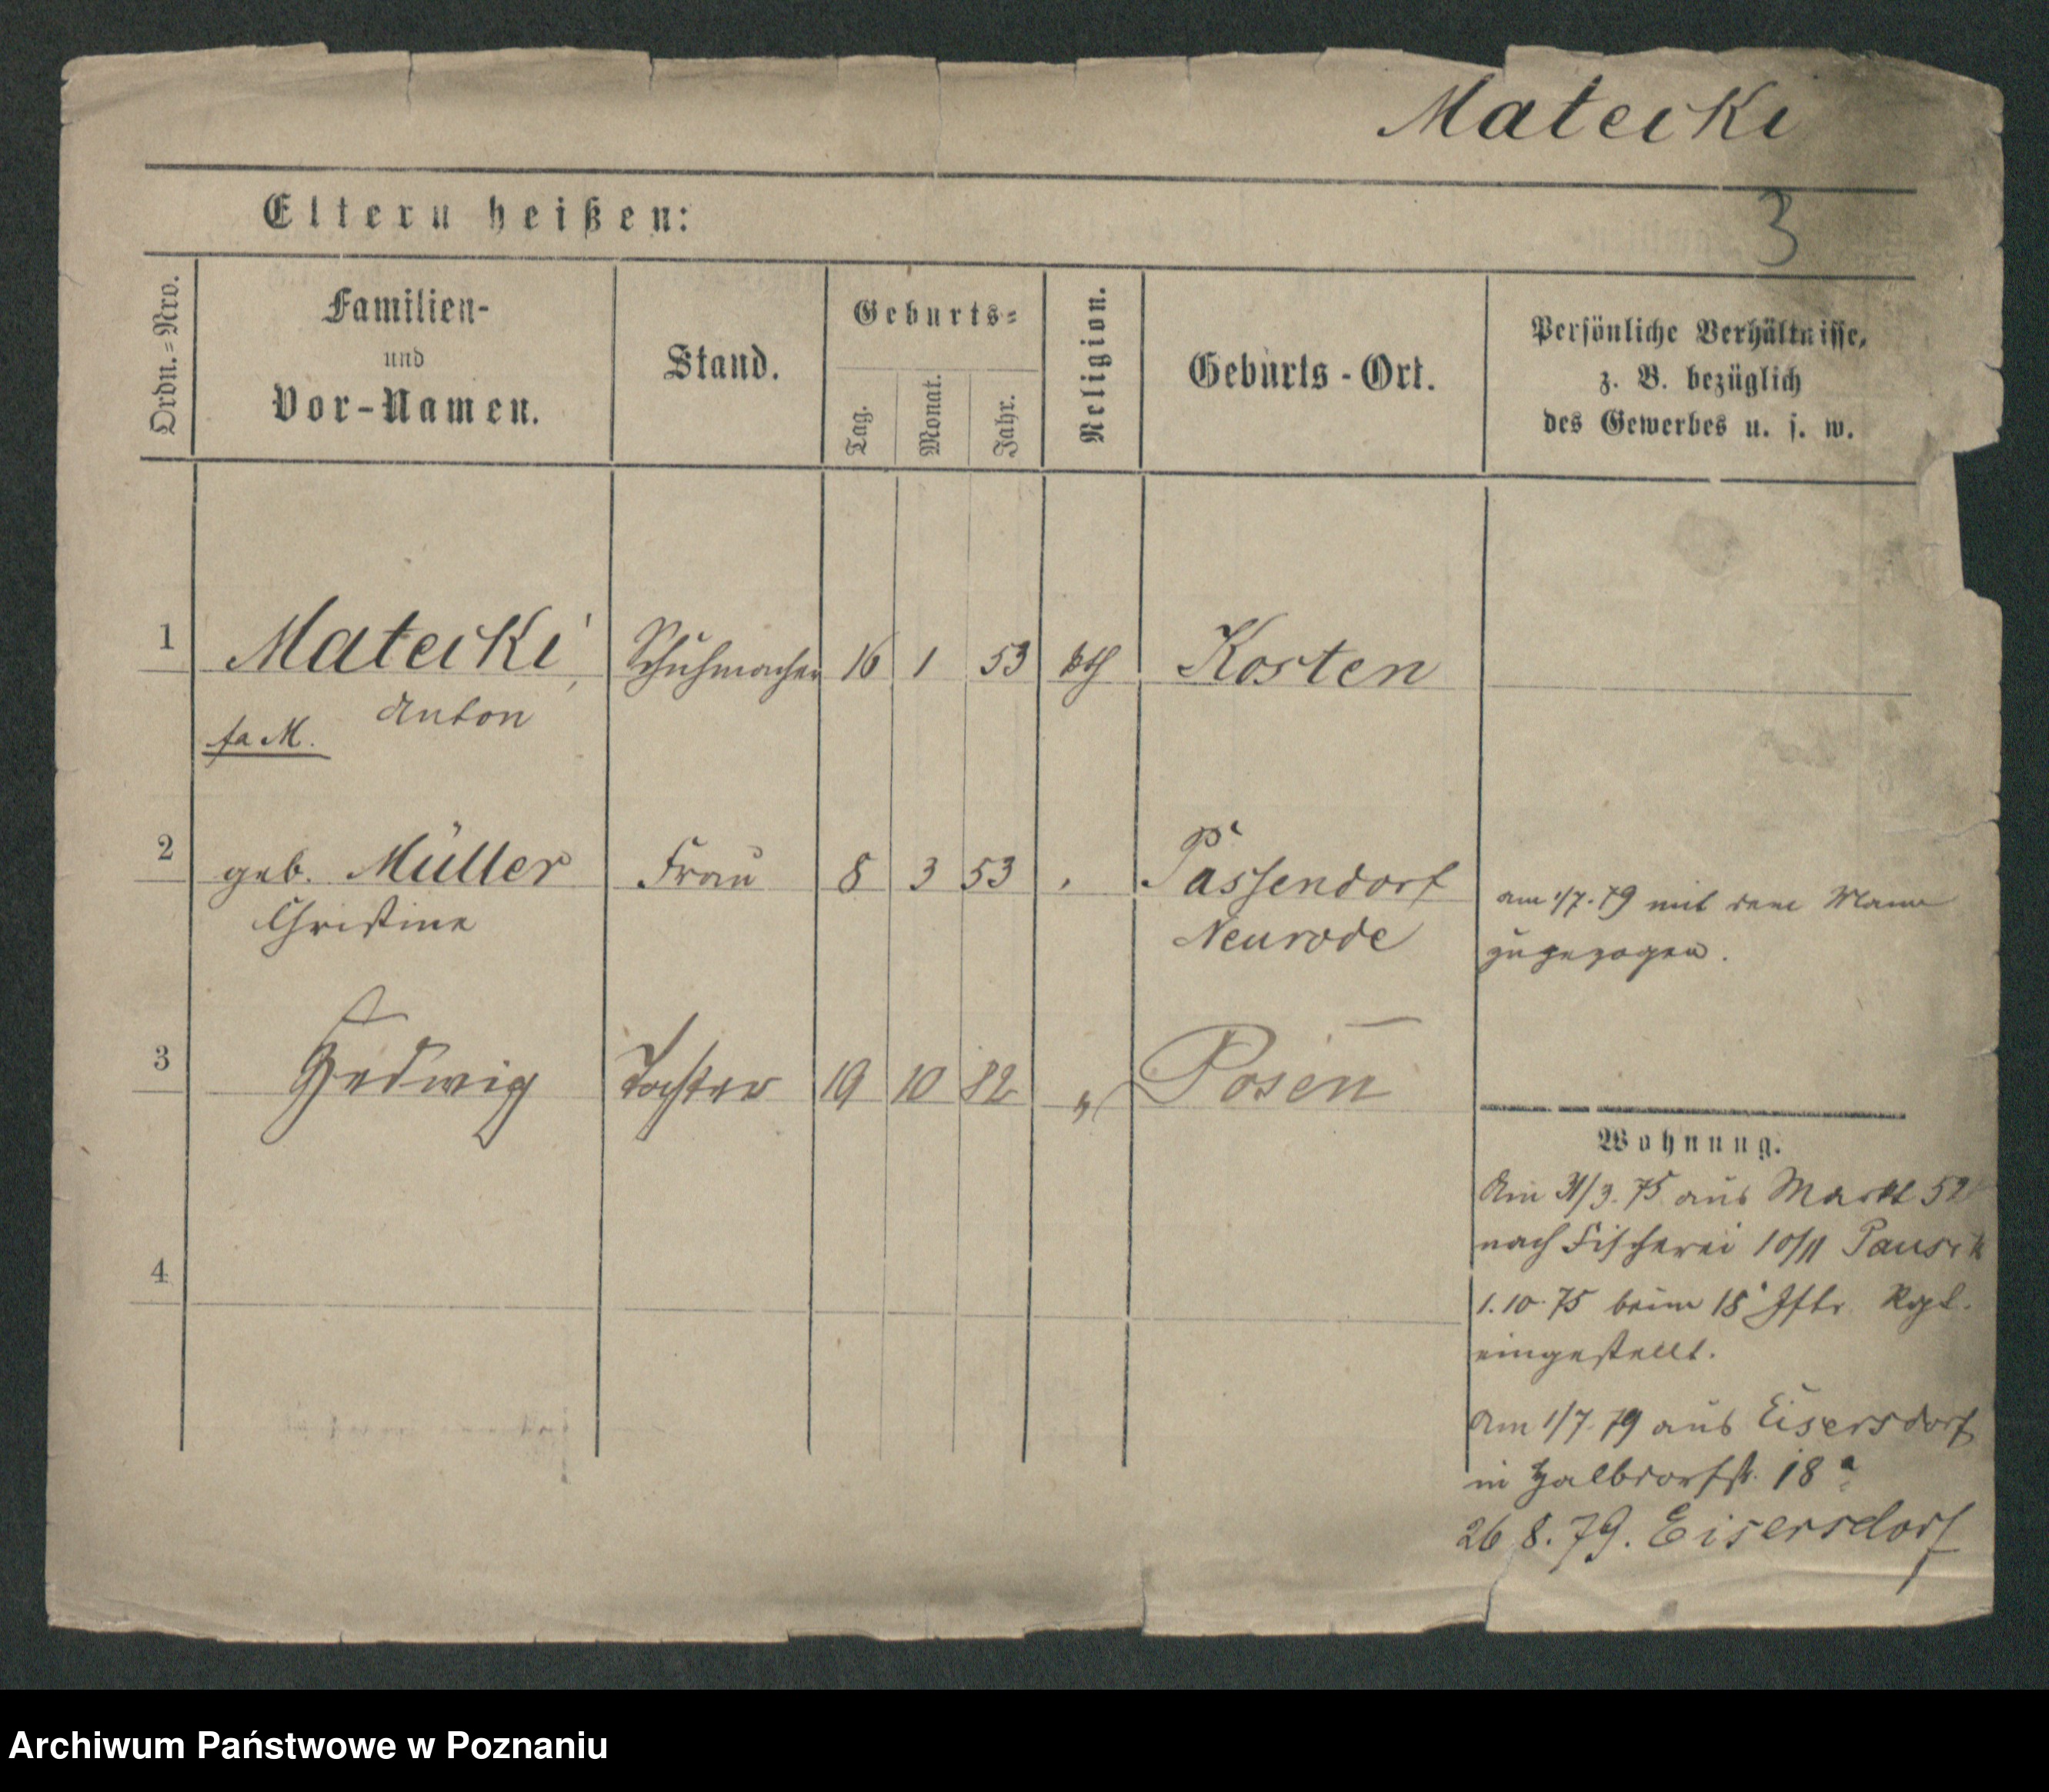 Matecki
3
Eltern heißen:
Ordn.=Nro.
Familien-
und
Vor-Namen.
Stand.
Geburts=
Tag.
Monat.
Jahr.
Religion.
Geburts-Ort.
Persönliche Verhältnisse,
z. B. bezüglich
des Gewerbes u. s. w.
1 Matecki, Schuhmacher 16 1 53 kth Kosten
Anton
fa M.
2 geb. Müller Frau 8 3 53 Passendorf
Christine Neurode
am 1/7. 79 mit dem Mann
zugezogen.
3 Hedwig Tochter 19 10 82 " Posen
4
Wohnung.
Am 31/3. 75 aus Markt 52
nach Fischerei 10/11
1. 10. 75 beim 18 Iftr. Rgt.
eingestellt.
Am 1/7. 79 aus Eisersdorf
in Halbdorfstr. 18a
26 8. 79. Eisersdorf
Archiwum Państwowe w Poznaniu